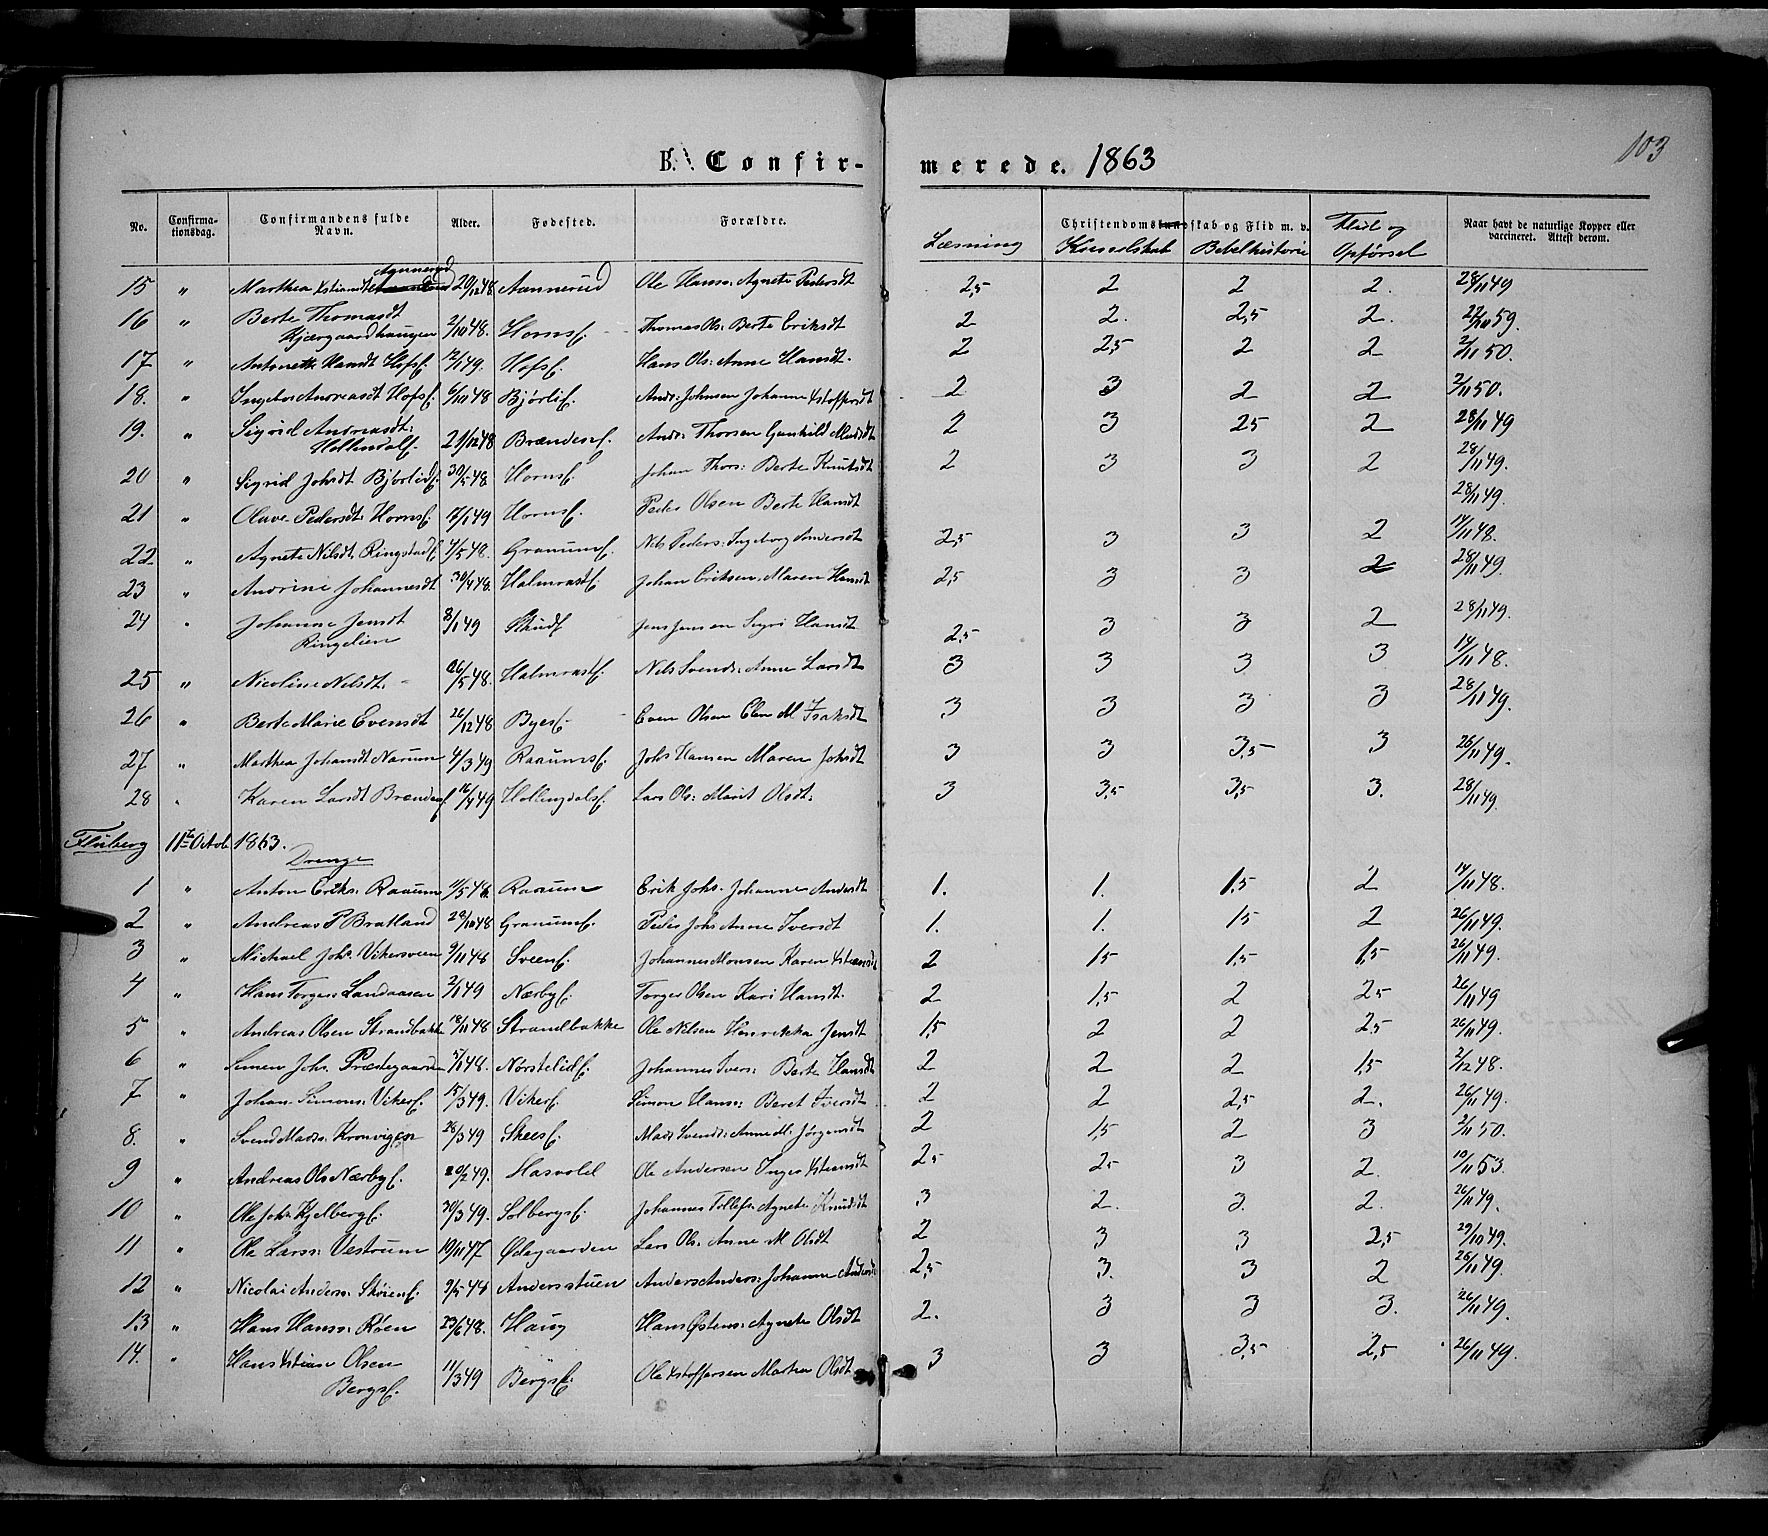 103
B. Confirmerede. 1863
No. Confirmationsdag. Confirmandens fulde Navn. Alder. Fødested. Forældre. Læsning Christendomskundskab og Flid m. v. Kundskab Bibelhistorie Flid og Opførsel Naar havt de naturlige Kopper eller vaccineret. Attest derom.
15 " Marthea Aannerud 20/12 48 Aannerud Ole Hanss: Agnete Pedersdt 2,5 2 2 2. 28/11 49
16 " Berte Thomasdt Kjærgaardhaugen 2/10 48. Hornsf. Thomas Ols: Berte Eriksdt 2 2. 2,5 2. 59.
17 " Antonette Hansdt Hofsf. 12/1 49. Hofsf. Hans Ols: Anne Hansdt. 2 2,5 2 2 2/11 50.
18. " Ingebor Andreasdt Hofsf. 6/10 48 Bjørlif. Ands: Johnsen Johanne Xstoffersdt 2 3 2 2 2/11 50.
19. " Sigrid Andreasdt: Hollendalsf. 21/12 48 Brændesf. Ands: Thorsen Gunhild 2 3 25 2 28/11 49
20 " Sigrid Johsdt Bjørlidf. 30/5 48 Hornsf. Johan Thors: Berte Knutsdt 2 3 3 2 28/11 49.
21 " Oluve Pedersdt: Hornsf. 17/1 49 Hornsf. Peder Olsen Berte Hansdt 28/11 49.
22 " Agnete Nilsdt. Ringstadf. 4/5 48. Granumsf. Nils Peders: Ingeborg 2,5 3 3 2 14/11 48.
23 " Andrine Johannesdt 30/4 48. Halmrastf. Johan Eriksen. Maren Hansdt 2,5 3 3 2 28/11 49.
24 " Johanne Jensdt Ringelien 8/1 49 Skudf Jens Jensen Sigri Hansdt 2,5 3 3 2 28/11 49.
25 " Nicoline Nilsdt. 26/5 48. Halmrastf. Nils Svends: Anne Larsdt 3 3 3 3 14/11 48.
26 " Berte Marie Evensdt 26/12 48 Byesf. Even Olsen Elen M. Isaksdt 3 3 3 3 28/11 49.
27 " Marthea Johansdt Narum 4/3 49 Raaumsf. Johs Hansen Maren Johsdt 3 3 3,5 3 26/11 49.
28 " Karen Larsdt Brændesf 16/4 49 Hollengdalsf. Lars Ols: Marit Olsdt: 3 3,5 3,5 3. 28/11 49.
Fluberg 11te Octob. 1863.
Drenge
1 " Anton Eriks. Raaum 11/5 48. Raaum Erik Johs. Johanne Andersdt 1. 1. 1,5 2 14/11 48.
2 " Andreas P Bratland 28/10 48 Granumsf. Peder Johs Anne Iversdt 1. 1. 15 2 26/11 49.
3 " Michael Johs Vikersveen 9/11 48 Sveenf. Johannes Monsen Karen Xstiansdt 2 15 1,5 1,5 26/11 49.
4 " Hans Torgers Landaasen 2/1 49 Nærbyf. Torger Olsen Kari Hansdt. 2 1,5 2 25 26/11 49
5 " Andreas Olsen Strandbakke 18/11 48 Strandbakke Ole Nilsen Henrikka Jensdt 1,5 2 2 2,5 26/11 49.
6 " Simen Johs. Prestegaarden 5/11 48. Nørstelidf. Johannes Ivers: Berte Hansdt 2 2 2 1,5 2/12 48.
7 " Johan Simons: Vikersf. 15/3 49. Vikersf. Simon Hanss: Beret Iversdt. 2 2 2,5 2. 26/11 49.
8. " Svend Mads: Kronvigen 28/3 49 Skeesf. Mads Svends: Anne M. Jørgensdt 2 1,5 2 3 2/11 50.
9 " Andreas Ols Nærbyf. 20/2 49. Hasvold Ole Andersen Inger Xstiansdt 25 25 3 2. 10/11 53.
10 " Ole Johs Kjelbergf. 30/3 49. Solbergsf. Johannes Tollefs: Agnete Knudsdt 3 2. 3. 2. 26/11 49.
11 " Ole Larss: Vestrum 19/11 47 Ødegaarden Lars Ols: Anne M Olsdt 2 3 3 2,5 29/10 49.
12 " Nicolai Anders: Skøienf. 9/5 48 Andersstuen Anders Anders: Johanne Andersdt 2,5 3. 3 2 26/11 49.
13 " Hans Hanss: Røen 23/6 48. Haug Hans Østens: Agnete Olsdt 2. 3 3 3. 26/11 49.
14. " Hans Xstian Olsen Bergsf. 11/3 49 Bergsf. Ole Xstoffersen Marthea Olsdt 3 3 3,5 2,5 26/11 49.